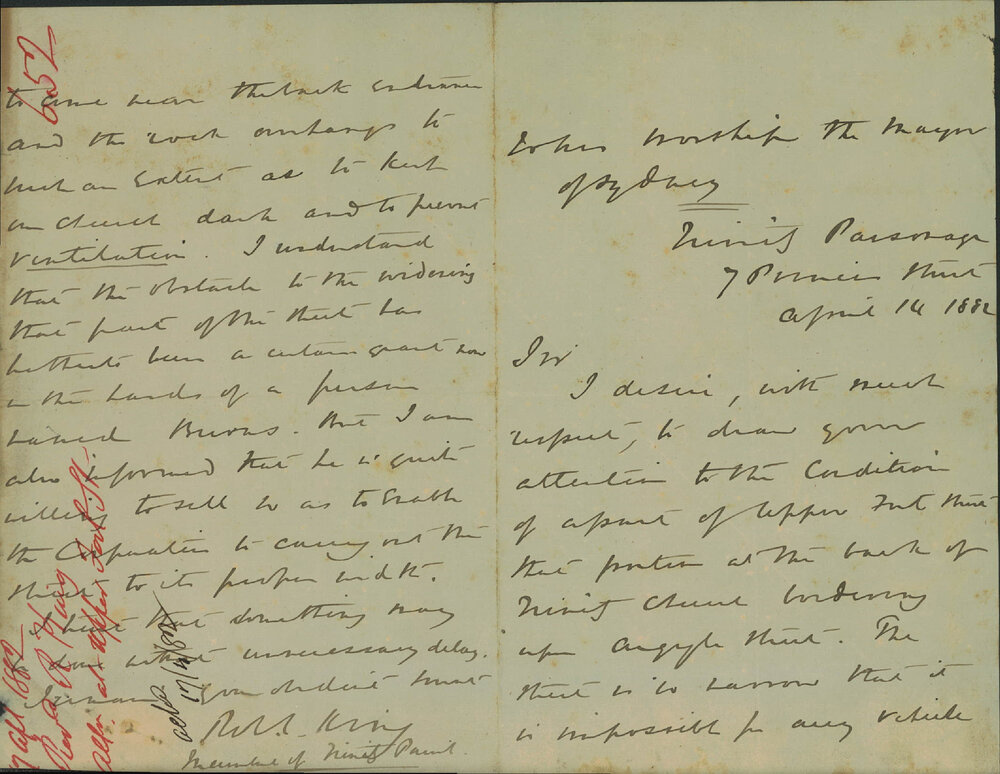 To his worship the Mayor
of Sydney
Trinity Parsonage
7 Princes Street
April 14 1882
Sir
I desire, with much
respect, to draw your
attention to the condition
of a part of Upper Fort Street
that portion at the back of
Trinity Church bordering
upon Argyle Street. The
street is so narrow that it
is impossible for any vehicle
to come near the back entrance
and the rock overhangs to
such an extent as to keep
our church dark and to prevent
ventilation. I understand
that the obstacle to the widening
that part of the street has
hitherto been a certain grant now
in the hands of a person
named Burns. But I am
also informed that he is quite
willing to sell so as to enable
the Corporation to carry out the
street to its proper width.
I trust that something may
done without unnecessary delay.
I remain your obedient servant
Robt. L. King
Incumbent of Trinity Parish.
652
Apl 1882
Revd R L King
Upper Fort St.
ackd